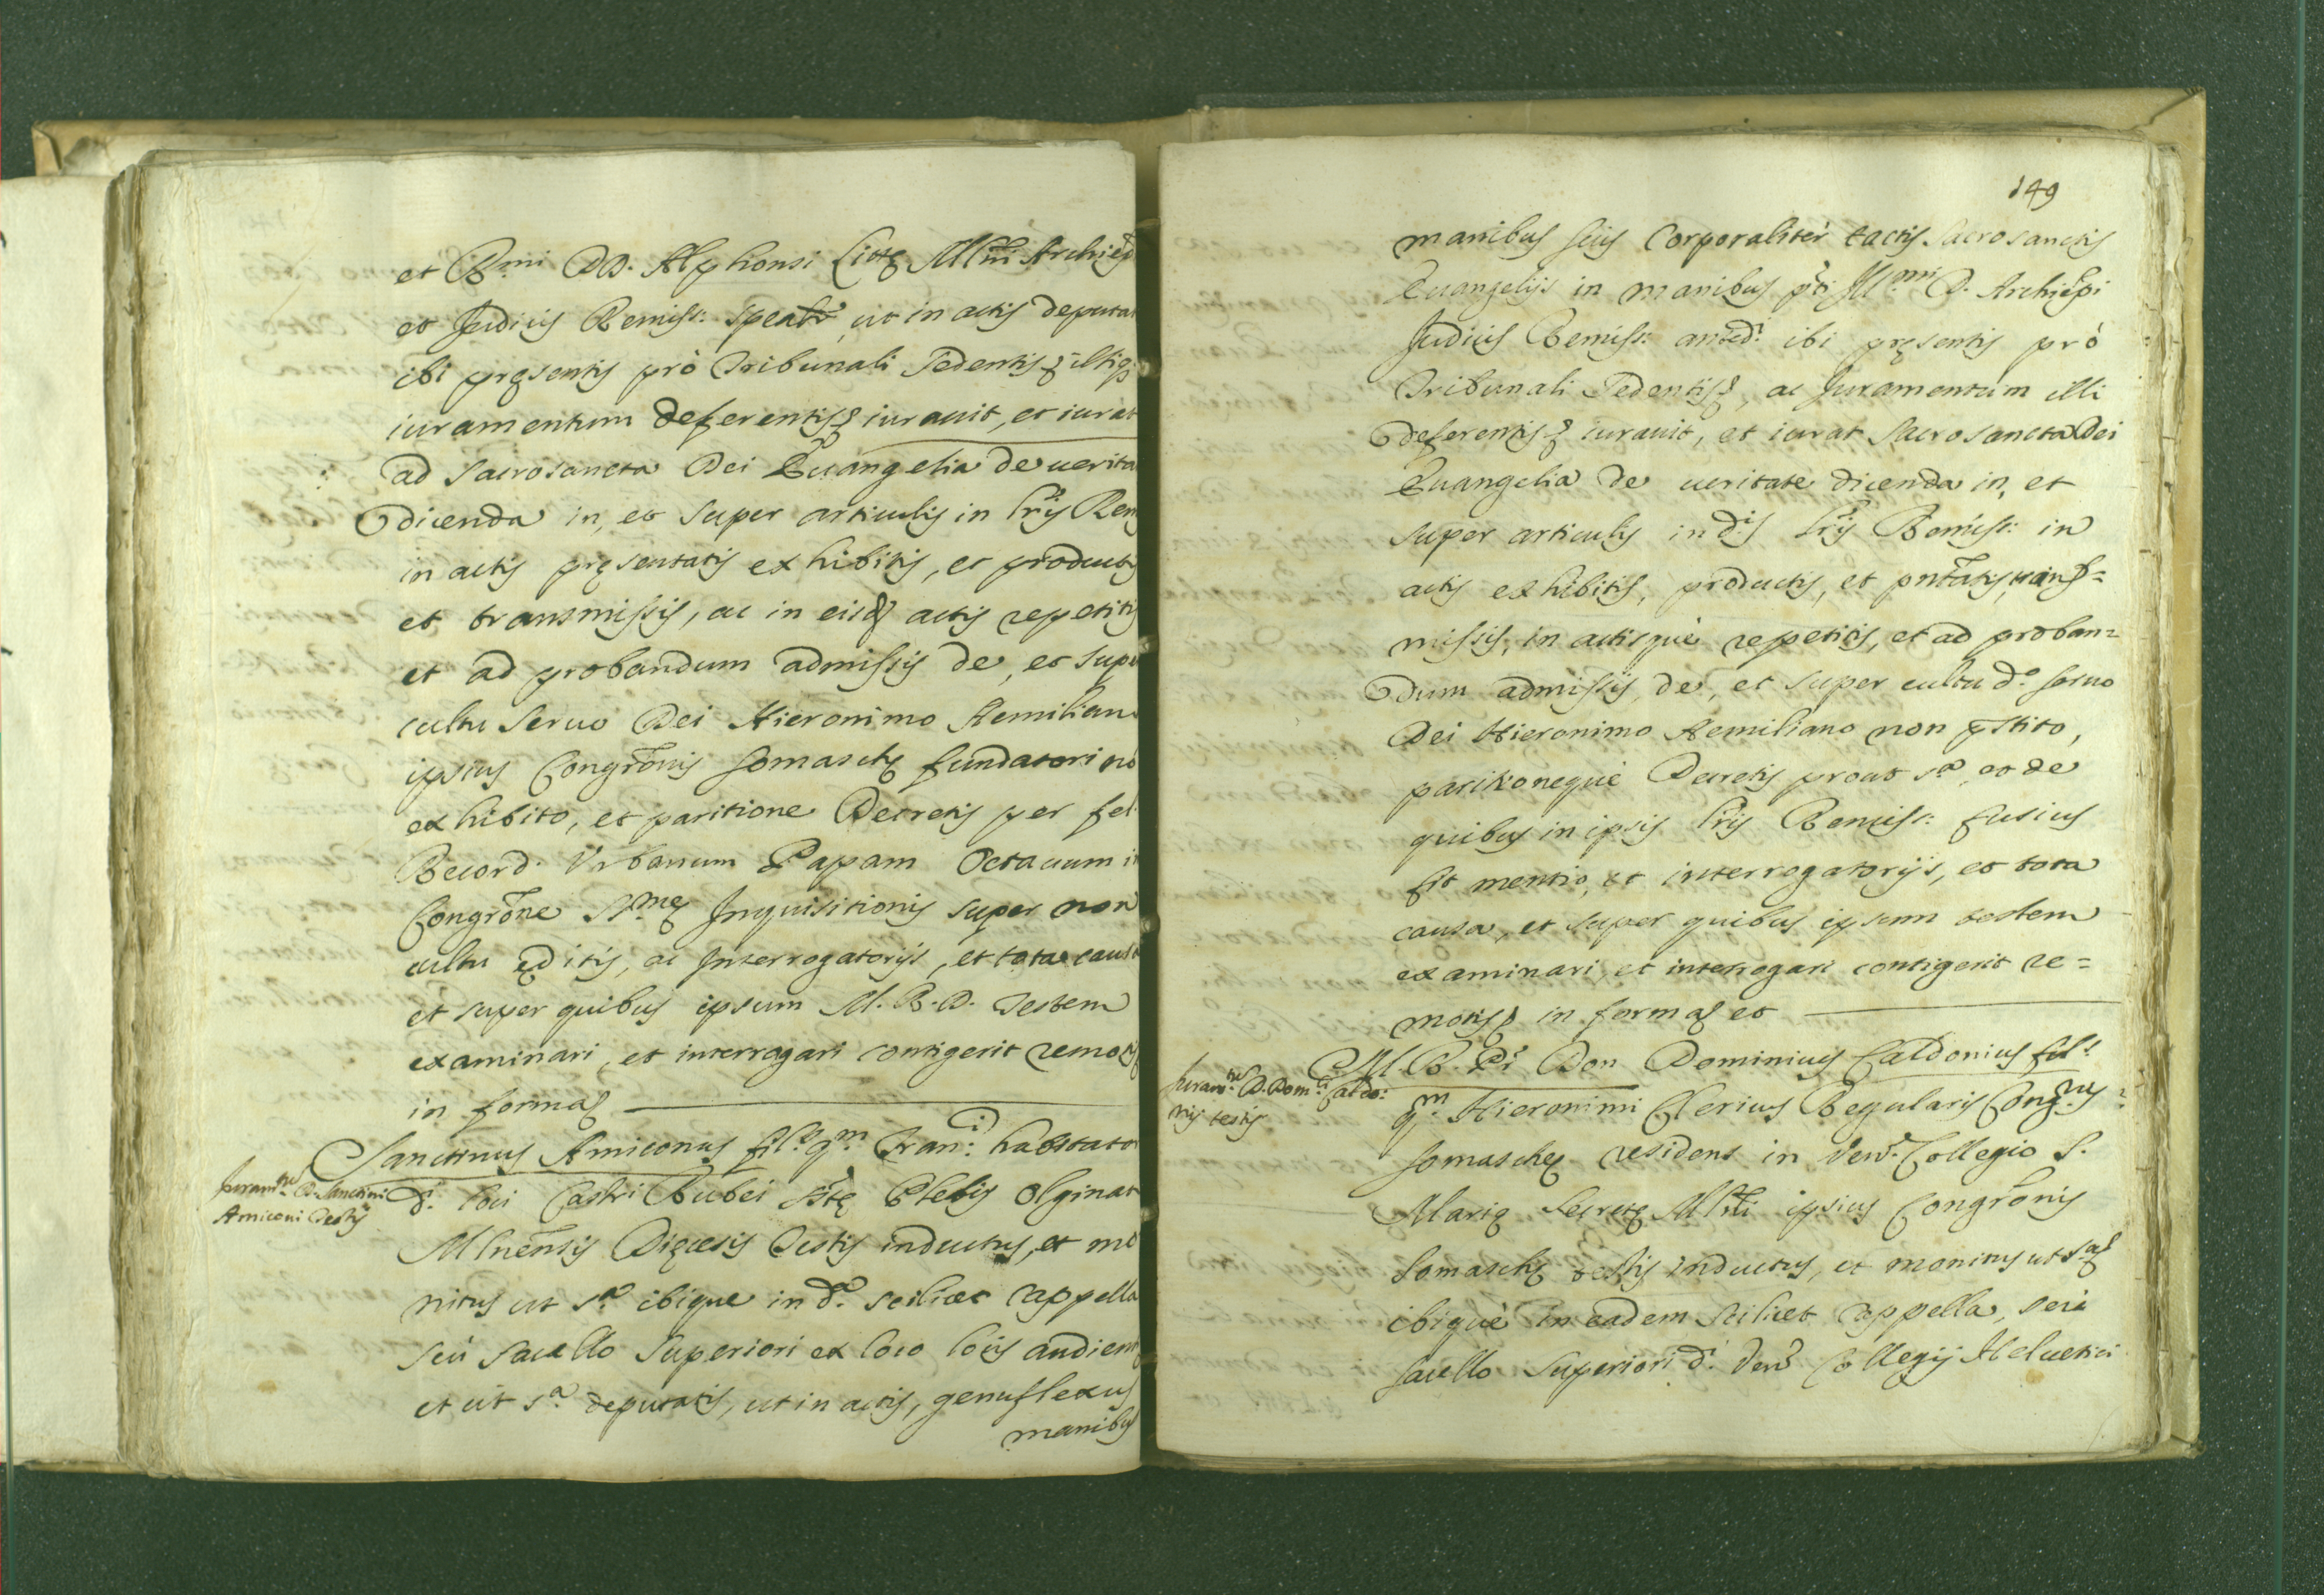 et R.mi DD. Alphonsi Littę Mlni Archiep
et Judicis Remiss: speālr, ut in actis deputat
ibi pręsentis prò Tribunali Sedentis illiq;
iuramentum deferentis iurauit, et iurat
ad sacrosancta Dei Euangelia de uerita
dicenda in, et super articulis in lris Rem
in actis pręsentatis exhibitis, et productis
et transmissis, ac in eisd actis repetitis
et ad probandum admissis de, et supe
cultu seruo Dei Hieronimo Aemilian
ipsius Congrōnis Somaschę fundatori nō
exhibito, et paritione Decretis per fel.
Record. Vrbanum Papam Octauum i
Congrōne S.mę Inquisitionis super non
cultu ęditis, ac Interrogatorijs, et tota caus
et super quibus ipsum M. R. D. Testem
examinari, et interrogari contigerit remotis
in forma
Sanctinus Amiconus fil.s q.m Fran.i habitator
Juram.tu D. Sanctini
Amiconi Testis
d.i loci Castri Rubei Plebis Olginat
Mlnēnsis Dięcesis Testis inductus, et mo
nitus ut s.a ibique in d.a scilicet Cappella
seù sacello superiori ex loco locis audien
et ut s.a deputatis, ut in actis, genuflexus
manibus
149
manibus suis Corporalitèr tactis Sacrosanctis
Euangelijs in manibus pti Ill.mi D. Archiēpi
Judicis Remiss: anted.i ibi pręsentis prò
Tribunali Sedentis, ac Juramentum illi
deferentis iurauit, et iurat Sacrosancta Dei
Euangelia de ueritate dicenda in, et
super articulis in d.is lris Remiss: in
actis exhibitis, productis, et pntātis, trans=
missis, in actisquè repetitis, et ad proban=
dum admissis, de, et super cultu d.o seruo
Dei Hieronimo Aemiliano non pstito,
paritionequè Decretis prout s.a et de
quibus in ipsis lris Remiss: fusius
fit mentio, et interrogatorijs, et tota
causa, et super quibus ipsum testem
examinari, et interrogari contigerit re=
motis in forma et
M. R. P.r Don Dominicus Caldonius fil.s
Juram.tu D. Dom.ci Caldo:
nij testis
q.m Hieronimi Clericus Regularis Cong.nis
Somaschę residens in Ven. Collegio S.
Marię Secretę Mlni ipsius Congrōnis
Somaschę testis inductus, et monitus ut s.a
ibiquè in eadem scilicet Cappella, seù
sacello superiori d.i Ven. Collegij Heluetici